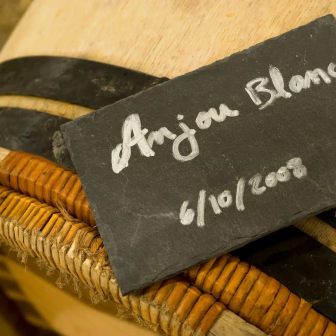 Anjou Blanc
6/10/2008